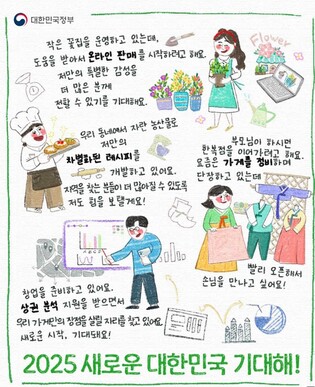 대한민국정부
작은 꽃집을 운영하고 있는데,
도움을 받아서 온라인 판매를 시작하려고 해요.
저만의 특별한 감성을
더 많은 분께
전할 수 있기를 기대해요.
Flower
우리 동네에서 자란 농산물로
저만의
차별화된 레시피를
개발하고 있어요.
지역을 찾는 분들이 더 많아질 수 있도록
저도 힘을 보탤게요!
부모님이 하시던
한복점을 이어가려고 해요.
요즘은 가게를 정비하며
단장하고 있는데
빨리 오픈해서
손님을 만나고 싶어요!
창업을 준비하고 있어요.
상권 분석 지원을 받으면서
우리 가게만의 장점을 살릴 자리를 찾고 있어요.
새로운 시작, 기대돼요!
2025 새로운 대한민국 기대해!